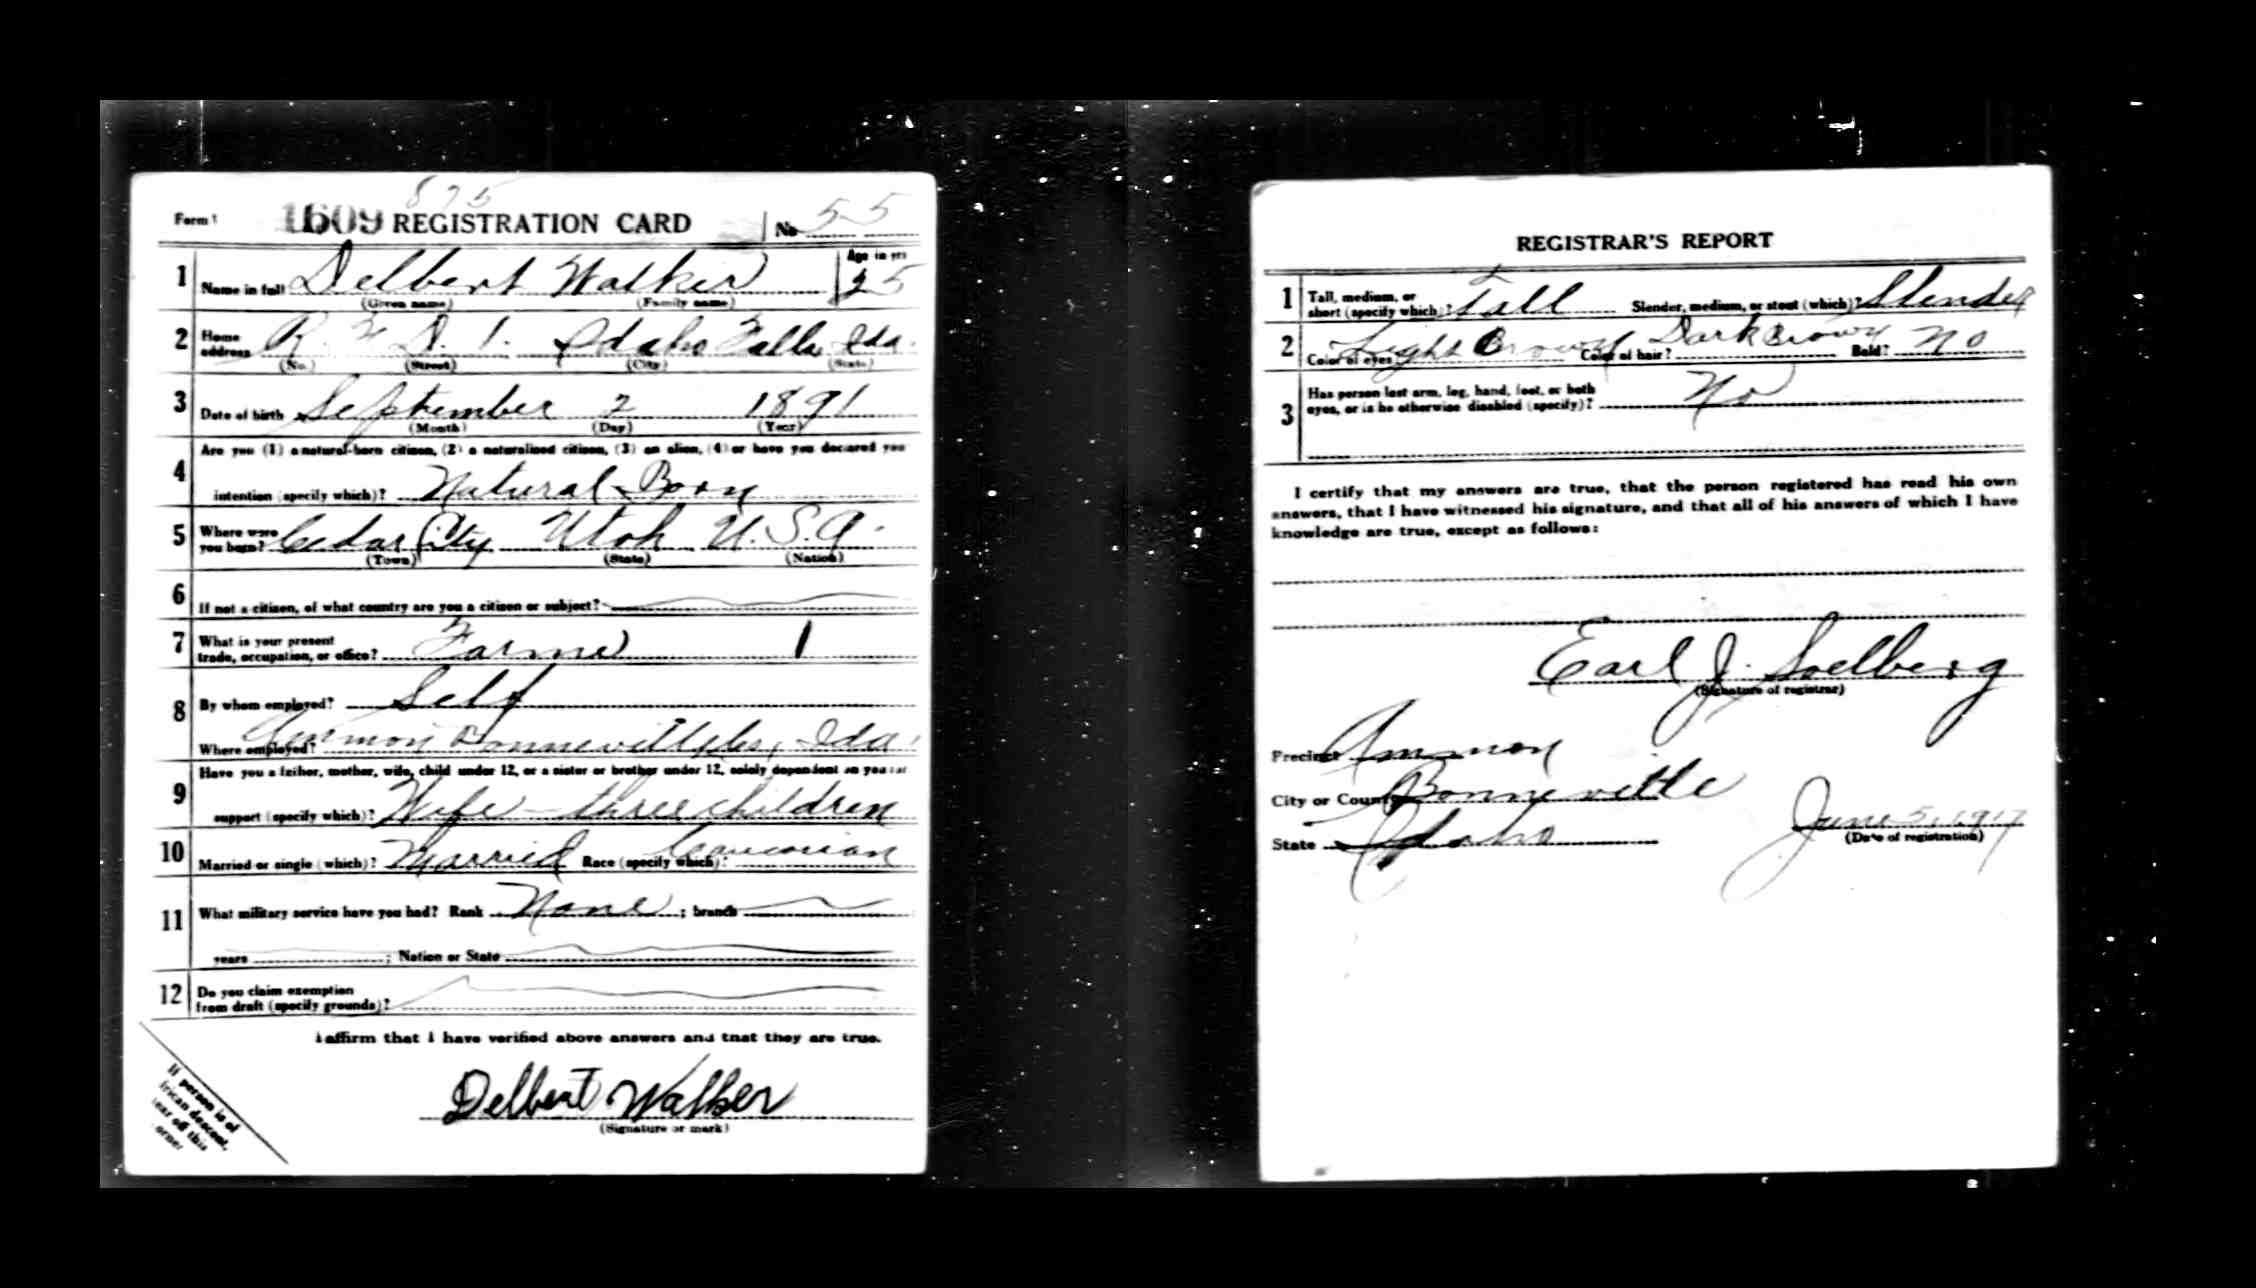 875
Form 1 1609 REGISTRATION CARD No 55
1 Name in full Delbert Walker Age in yrs 25
(Given name) (Family name)
2 Home address R. F. D. 1. Idaho Falls Ida.
(No.) (Street) (City) (State)
3 Date of birth September 2 1891
(Month) (Day) (Year)
4 Are you (1) a natural-born citizen, (2) a naturalized citizen, (3) an alien, (4) or have you declared you
intention (specify which)? Natural Born
5 Where were you born? Cedar City Utah U.S.A.
(Town) (State) (Nation)
6 If not a citizen, of what country are you a citizen or subject?
7 What is your present
trade, occupation, or office? Farmer 1
8 By whom employed? Self
Where employed? Ammon Bonneville Ida.
9 Have you a father, mother, wife, child under 12, or a sister or brother under 12, solely dependent on you for
support (specify which)? Wife - three children
10 Married or single (which)? Married Race (specify which)? Caucasian
11 What military service have you had? Rank None ; branch
years ; Nation or State
12 Do you claim exemption
from draft (specify grounds)?
I affirm that I have verified above answers and that they are true.
Delbert Walker
(Signature or mark)
If person is of
frican descent,
tear off this
corner
REGISTRAR'S REPORT
1 Tall, medium, or
short (specify which)? Tall Slender, medium, or stout (which)? Slender
2 Color of eyes? Light Brown Color of hair? Dark Brown Bald? No
3 Has person lost arm, leg, hand, foot, or both
eyes, or is he otherwise disabled (specify)? No
I certify that my answers are true, that the person registered has read his own
answers, that I have witnessed his signature, and that all of his answers of which I have
knowledge are true, except as follows:
Earl J. Soelberg
(Signature of registrar)
Precinct Ammon
City or County Bonneville
State Idaho June 5, 1917
(Date of registration)